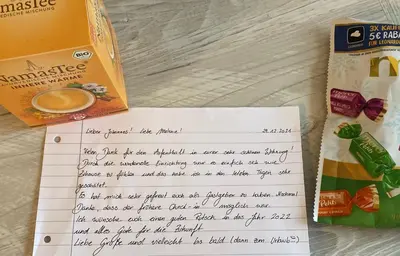 NamasTee
BIO
NamasTee
INNERE WÄRME
3X KAUF
5€ RABA
Lieber Johannes! Liebe
29.12.2021
Vielen Dank für den Aufenthalt in eurer sehr schönen Wohnung!
Durch die wundervolle Einrichtung war es einfach sich wie
Zuhause zu fühlen und das habe ich in den letzten Tagen sehr
genossen.
Es hat mich sehr gefreut euch als Gastgeber zu haben. Nochmal
Danke, dass der frühere Check-in möglich war.
Ich wünsche euch einen guten Rutsch in das Jahr 2022
und alles Gute für die Zukunft.
Liebe Grüße und vielleicht bis bald (dann zum Urlaub)